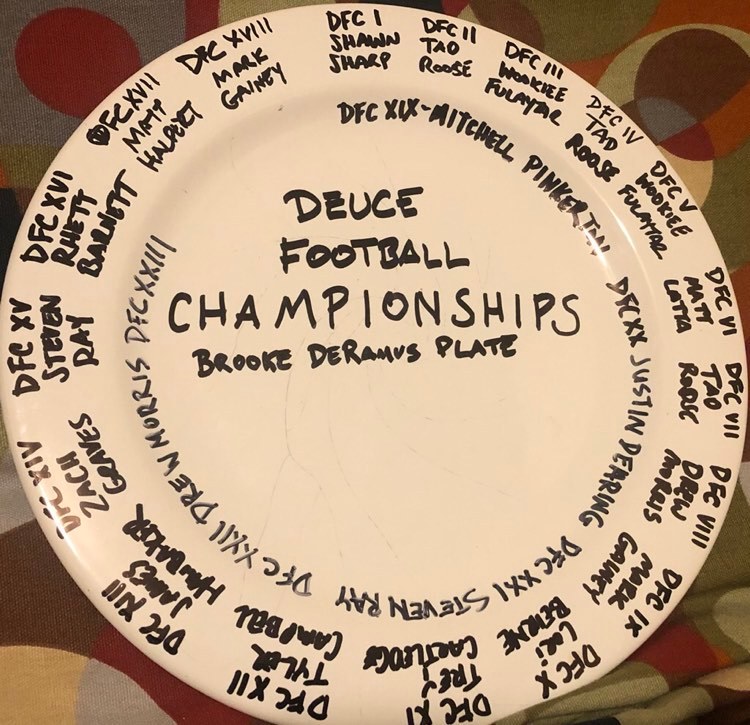 DEUCE
FOOTBALL
CHAMPIONSHIPS
BROOKE DERAMUS PLATE
DFC I
SHAWN
SHARP
DFC II
TAO
ROOSE
DFC III
WOOKIEE
FULAYTAR
DFC IV
TAO
ROOSE
DFC V
WOOKIEE
FULAYTAR
DFC VI
MATT
LATTA
DFC VII
TAO
ROOSE
DFC VIII
DREW
MORRIS
DFC IX
MARK
GAINEY
DFC X
LORI
BEIRNE
DFC XI
TREY
CARTLEDGE
DFC XII
TYLER
CAMPBELL
DFC XIII
JAMES
HAWBAKER
DFC XIV
ZACH
GRAVES
DFC XV
STEVEN
RAY
DFC XVI
RHETT
BARNETT
DFC XVII
MATT
HALPERT
DFC XVIII
MARK
GAINEY
DFC XIX-MITCHELL PINKERTON
DFC XX JUSTIN DEARING
DFC XXI STEVEN RAY
DFC XXII DREW MORRIS DFC XXIII